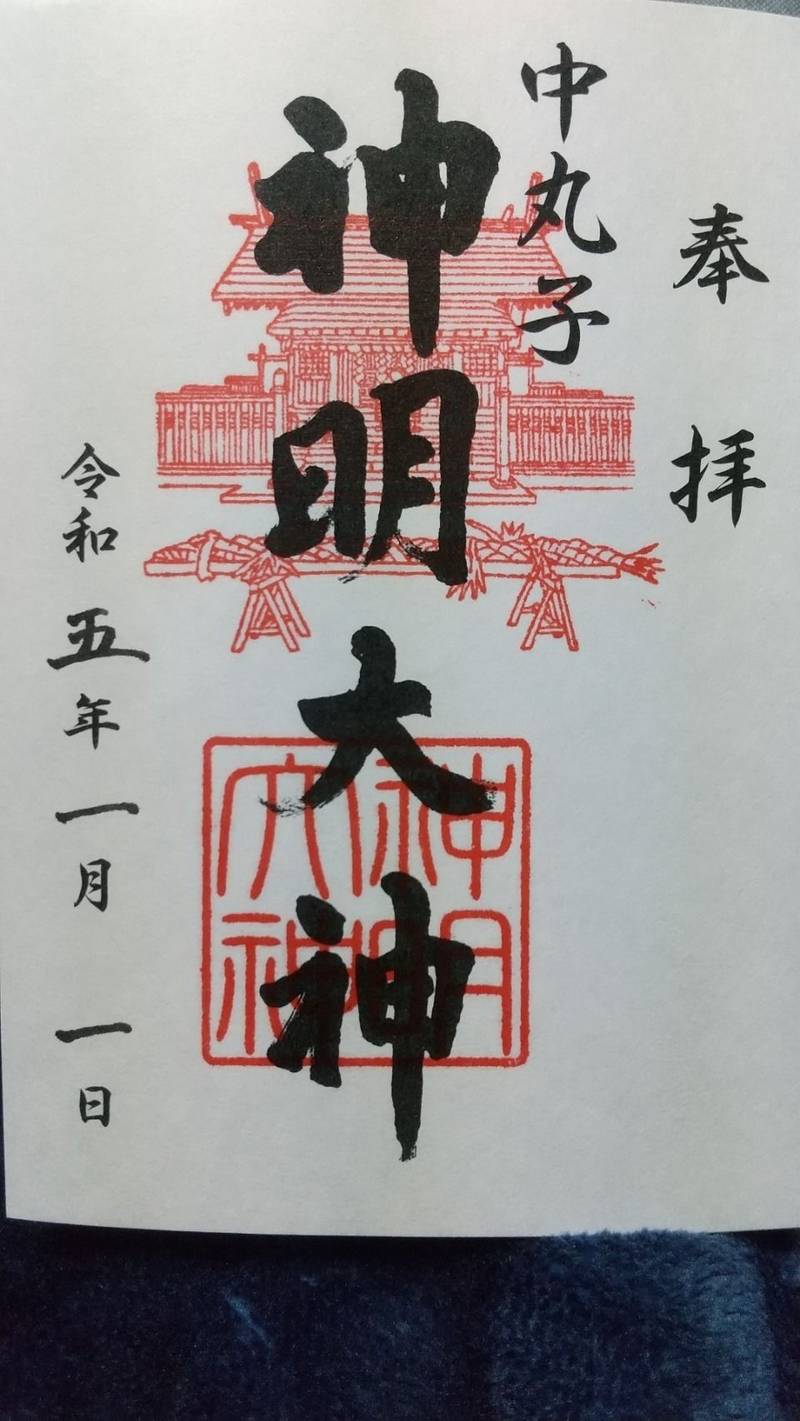 奉拝
中丸子
神明大神
神明大神
令和五年一月一日